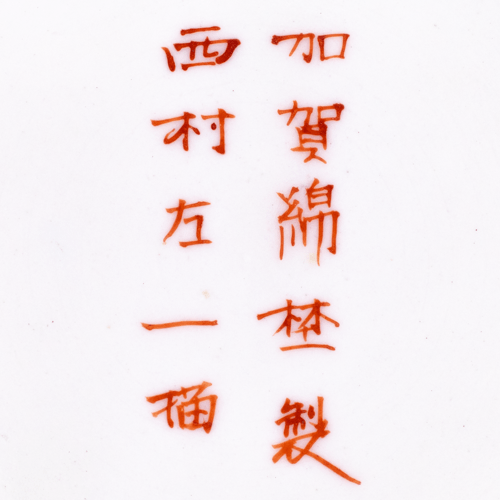 加賀綿埜製
西村左一描